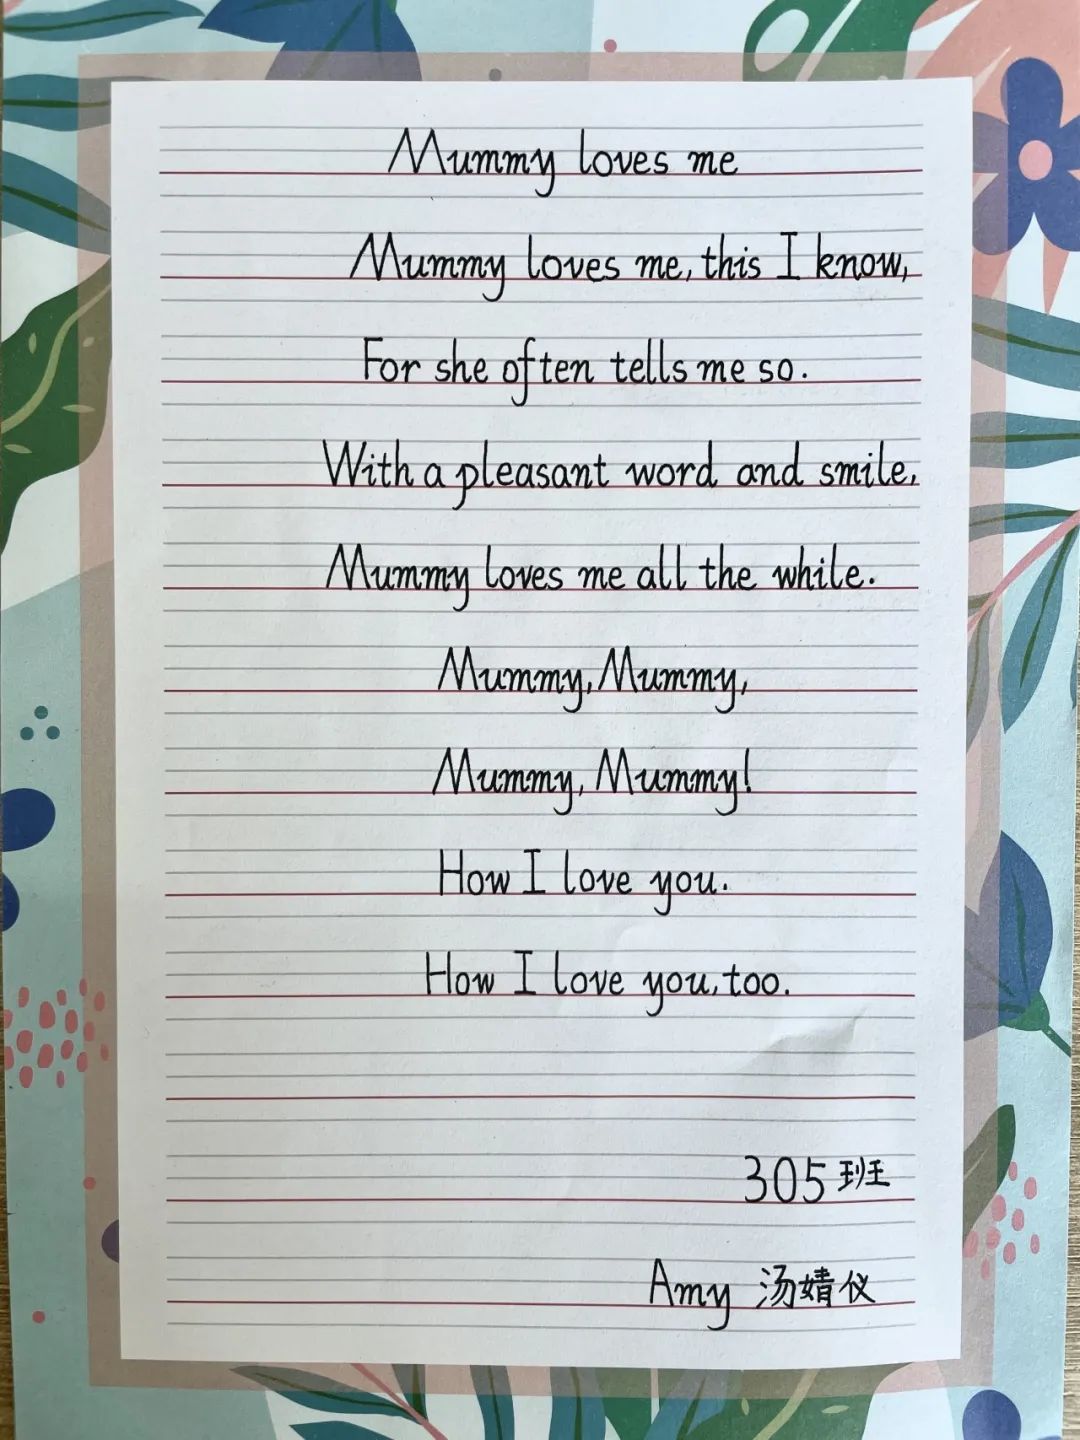 Mummy loves me
Mummy loves me, this I know,
For she often tells me so.
With a pleasant word and smile,
Mummy loves me all the while.
Mummy, Mummy,
Mummy, Mummy!
How I love you.
How I love you, too.
305班
Amy 汤婧仪